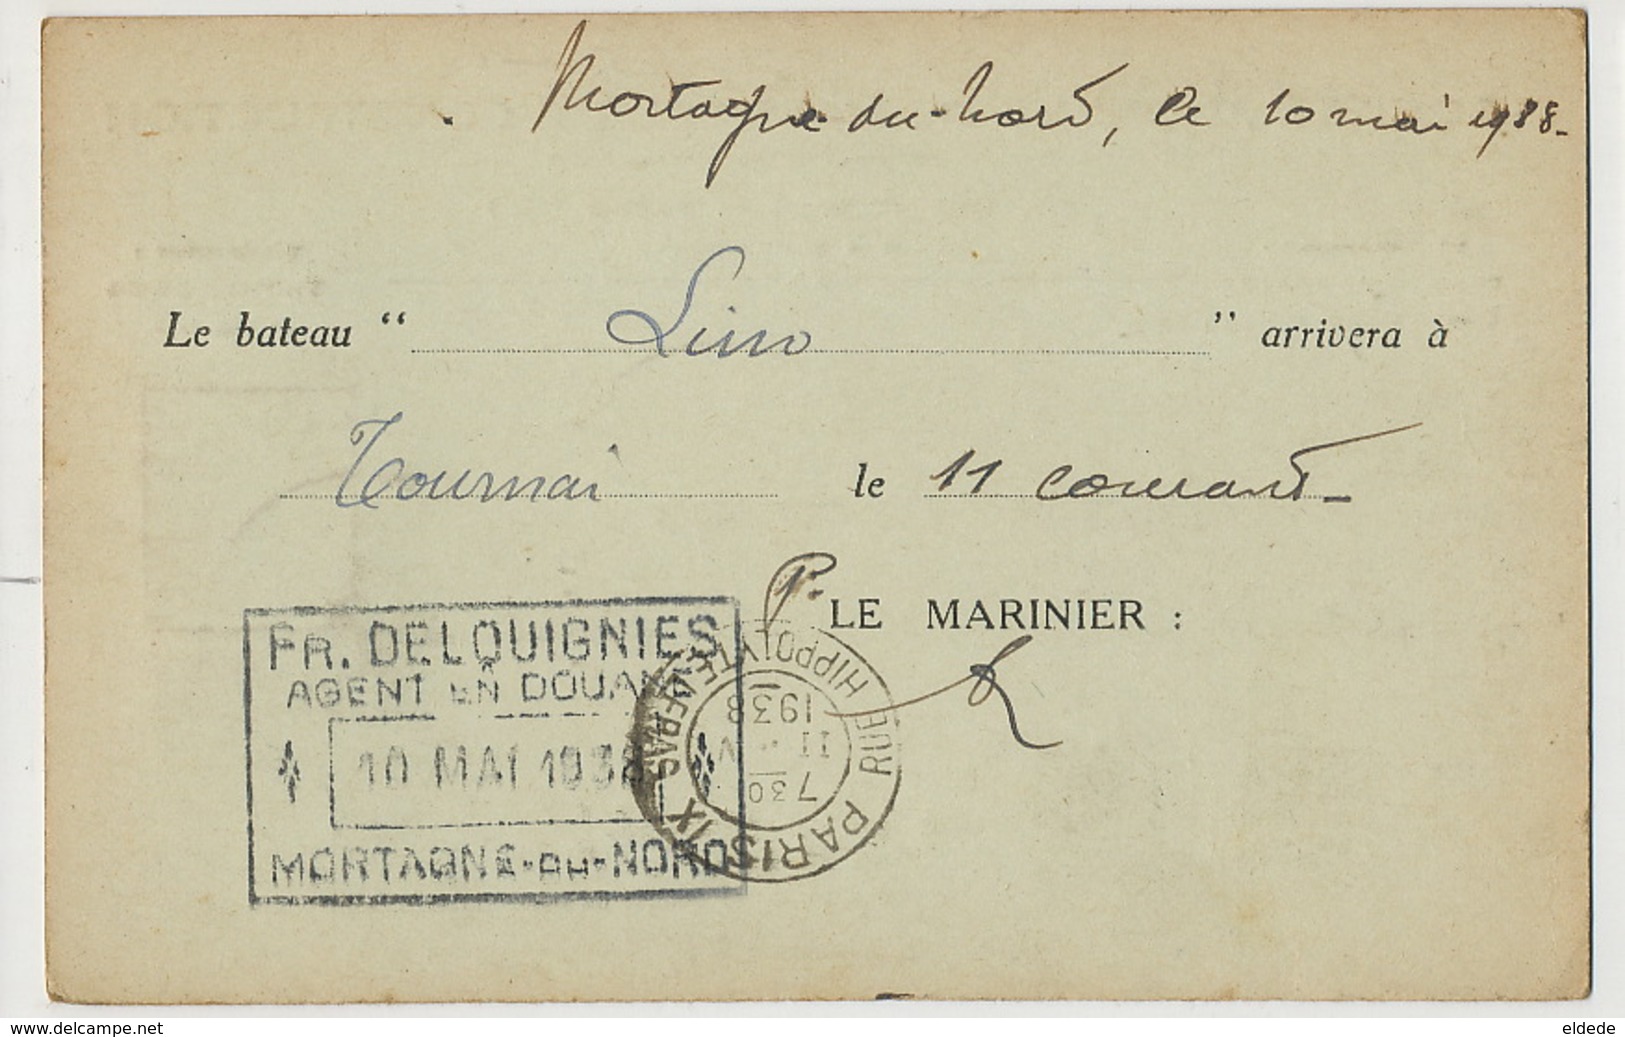 Mortagne-du-Nord, le 10 mai 1938.
Le bateau “ Lino ” arrivera à
Tournai le 11 courant
Pr LE MARINIER :
FR. DELQUIGNIES
AGENT EN DOUANE
10 MAI 1938
MORTAGNE-DU-NORD
PARIS IX
RUE HIPPOLYTE LEFEBAS
7 30
11 - V
1938
www.delcampe.net
eldede